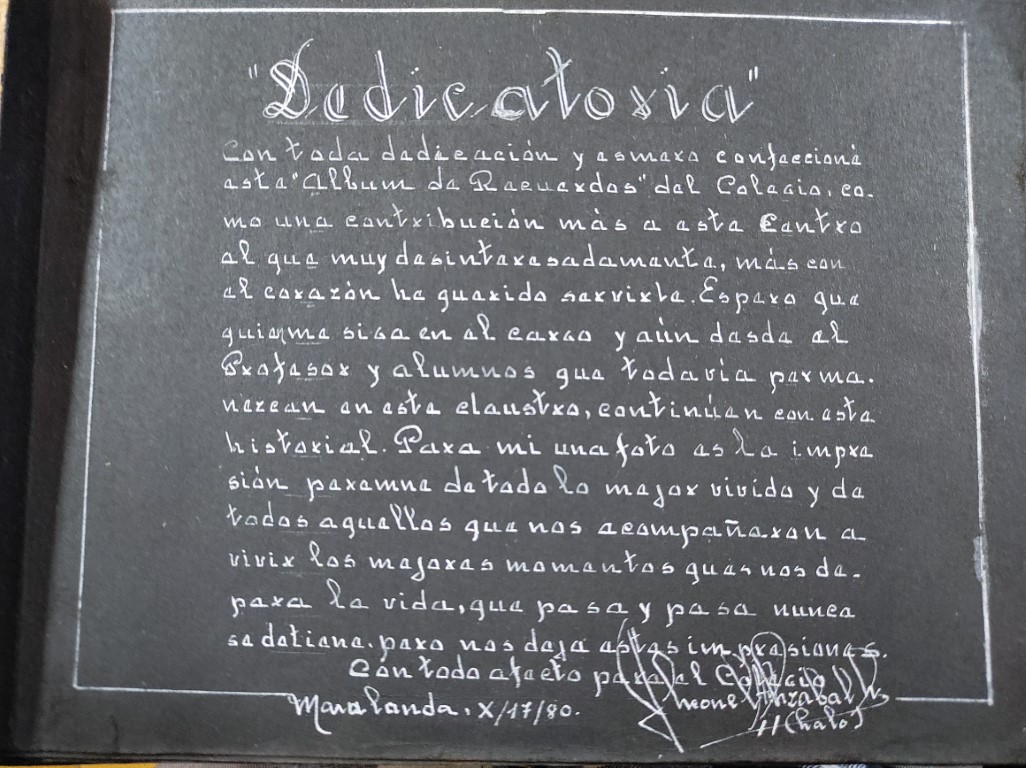 "Dedicatoria"
Con toda dedicación y esmero confeccioné
este "Album de Recuerdos" del Colegio, co-
mo una contribución más a este Centro
al que muy desinteresadamente, más con
el corazón he querido servirle. Espero que
quien me siga en el cargo y aún desde el
Profesor y alumnos que todavia perma-
nezcan en este claustro, continúen con este
historial. Para mi una foto es la impre
sión peremne de todo lo mejor vivido y de
todos aquellos que nos acompañaron a
vivir los mejores momentos que nos de-
para la vida, que pasa y pasa nunca
se detiene. pero nos deja estas impresiones.
Con todo afecto para el Colegio
Maralanda, X/17/80.